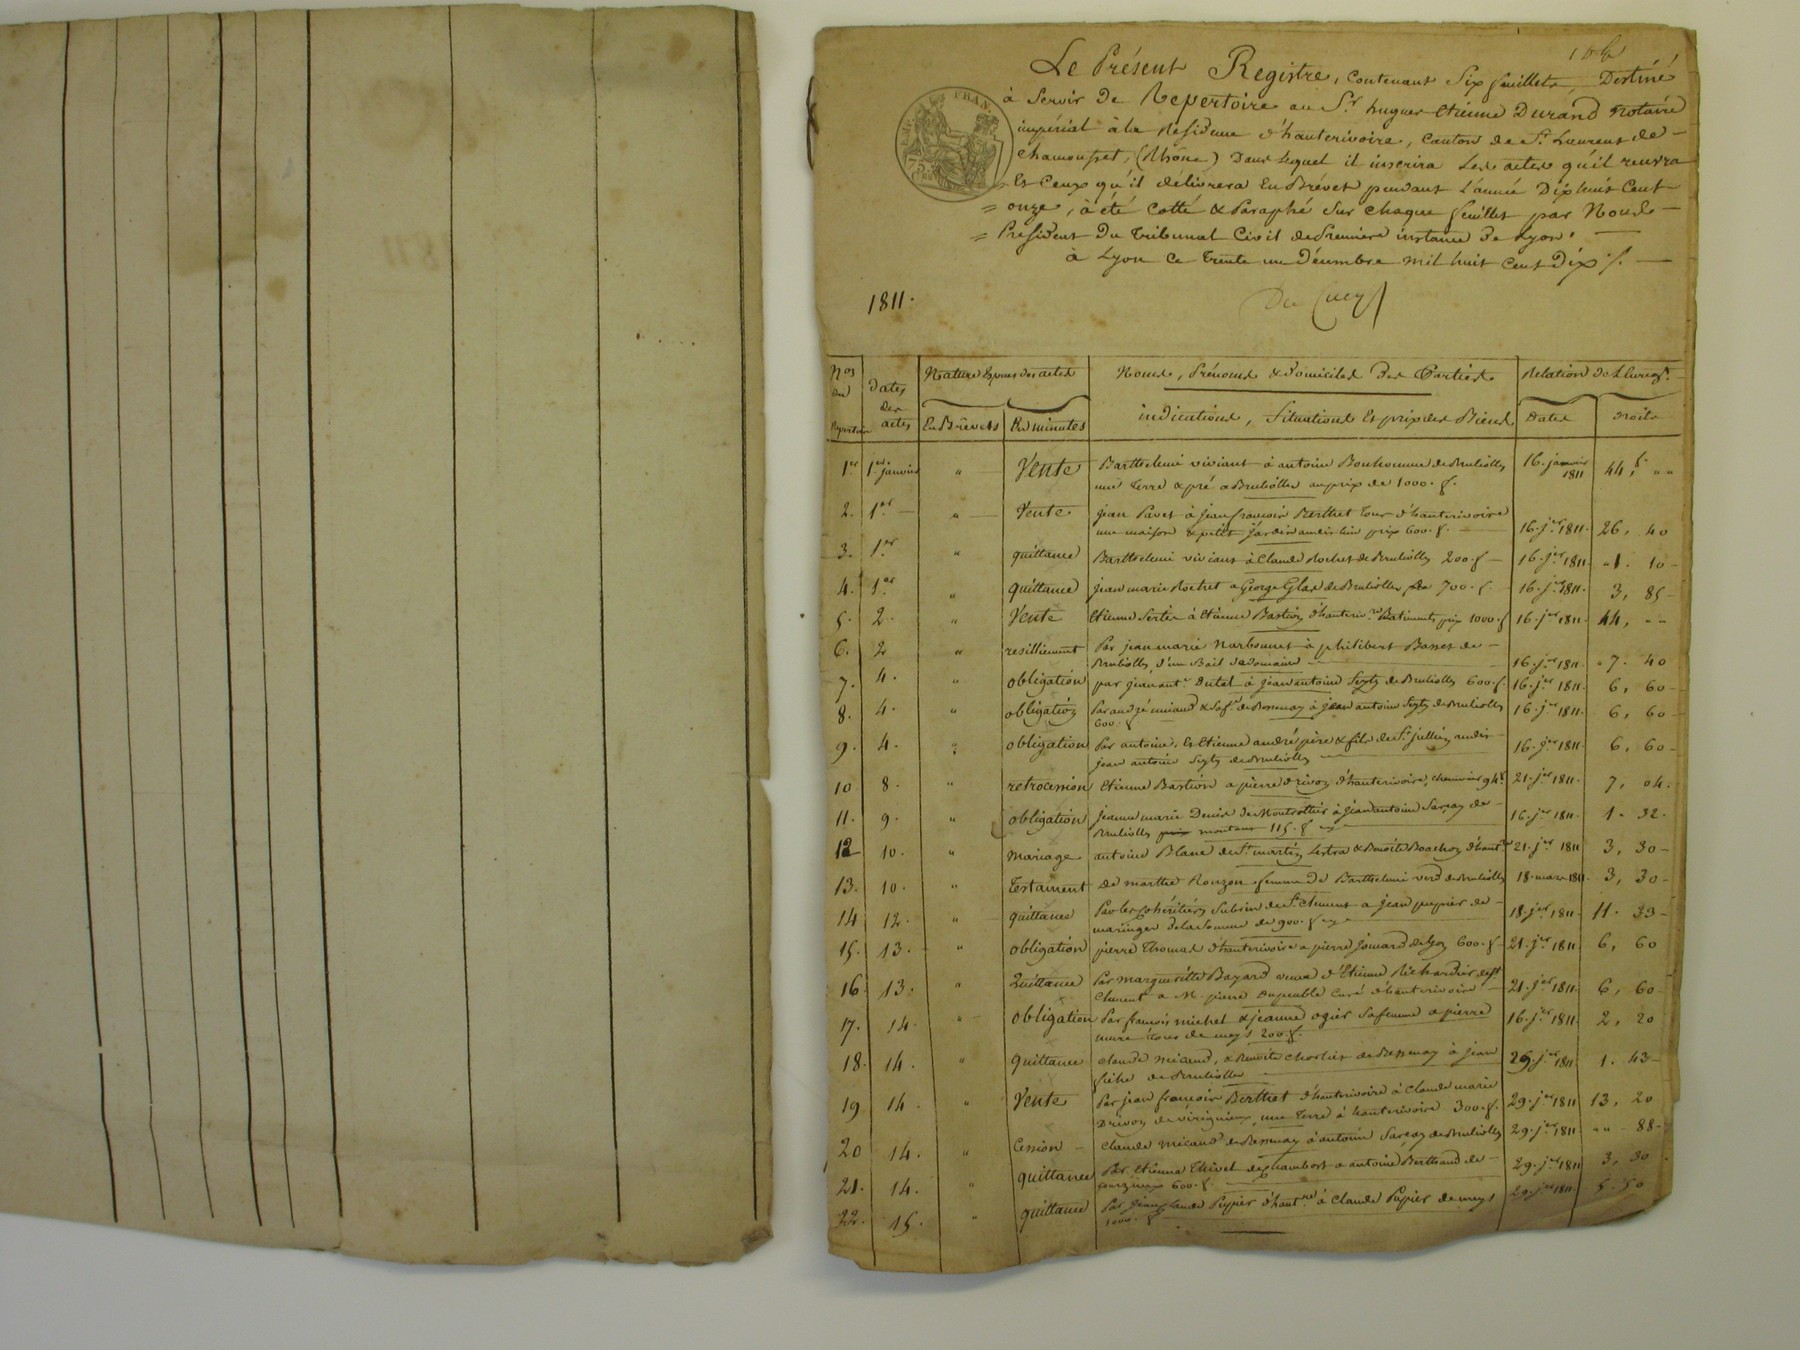 Le Présent Registre, contenant Six feuillets, Destiné
à Servir De Repertoire au Sr. hugues Etienne Durand Notaire
impérial à la Résidence d'hauterivoire, Canton de St. Laurent de
Chamousset, (Rhône) Dans lequel il inscrira Les actes qu'il recevra
Et Ceux qu'il délivrera En Brévet pendant L'année Dix huit Cent
onze, à été Cotté & Paraphé Sur chaque feuillet par Nous
Président Du Tribunal Civil de Première instance De Lyon.
à Lyon Ce Trente un Décembre mil huit Cent Dix
1811.
Nos du Repertoire
Dates des actes
Nature Espèces des actes
En Brévets
En minutes
Noms, Prénoms & Domiciles Des Parties
indications, Situations Et prix des Biens
Relation de L'Enregt.
Dates
Droits
1er 1er janvier " Vente Barthelemi viviant à antoine Bonhomme de Brulioles 16. janvier 1811 44, f. " "
une Terre & pré a Brulioles au prix de 1000. f.
2. 1er " Vente jean Pavet à jean françois Berthet Tous d'hauterivoire
une maison & petit jardin audit lieu prix 600. f. 16. jer 1811. 26, 40
3. 1er " quittance Barthelemi viviant à Claude Rochet de Brulioles 200. f 16. jer 1811. 1. 10
4. 1er " quittance jean marie Rochet a George Glas de Brulioles 700. f. 16. jer 1811. 3, 85
5. 2. " Vente Etienne à Etienne Bastion d'hauterivre Batiments prix 1000. f 16. jer 1811. 44, " "
6. 2 " resiliement Par jean marie Narbonnet à philibert Basset de
Brulioles, d'un Bail de Domaine 16. jer 1811. 7. 40
7. 4. " obligation par jean ant. Dutel à jean antoine de Brulioles 600. f. 16. jer 1811. 6, 60
8. 4. " obligation Par andré & Sa fe. de à jean antoine de Brulioles 16. jer 1811. 6, 60
600. f
9. 4. " obligation Par antoine, Et Etienne andré père & fils de St. jullien audit 16. jer 1811. 6, 60
jean antoine de Brulioles
10 8. " retrocession Etienne Bastion a pierre drivon d'hauterivoire, 94 f. 21. jer 1811. 7, 04.
11. 9. " obligation jeanne marie Denis de Montrottier à jean antoine de 16. jer 1811. 1. 32.
Brulioles montant 115. f
12 10. " Mariage antoine Blanc de St. martin Lestra & Benoite d'hautre 21. jer 1811 3, 30
13. 10. " Testament De marthe Rouzon femme De Barthelemi verd de Brulioles 18. mars 1811. 3, 30
14 12. " quittance Par les Cohéritiers Subrin de St. Clement a jean de 18. jer 1811 11. 33
maringer de la Somme de 900. f
15. 13. " obligation pierre Thomas d'hauterivoire a pierre jomard de Lyon 600. f 21. jer 1811 6, 60
16. 13. " Quittance Par marguerite Bayard veuve d'Etienne Richardier de St 21. jer 1811. 6, 60
Clement a M. pierre Curé d'hauterivoire
17. 14. " obligation Par françois michel & jeanne ogier Sa femme a pierre 16. jer 1811. 2, 20
mure tous de meys 200. f.
18. 14. " Quittance Claude micaud, & Benoite de à jean 29. jer 1811 1. 43
de Brulioles
19 14. " Vente Par jean françois Berthet d'hauterivoire à Claude marie 29. jer 1811 13, 20
Drivon de virigneux, une Terre à hauterivoire 300. f.
20 14. " Cession Claude micaud de à antoine de Brulioles 29. jer 1811 " " 88
21. 14. " quittance Par Etienne Thivel de Chambost a antoine Berthand de 29. jer 1811 3, 30
600. f.
22. 15. " quittance Par jean Claude Pupier d'hautre. à Claude Pupier de meys 29. jer 1811. 5. 50
1000. f